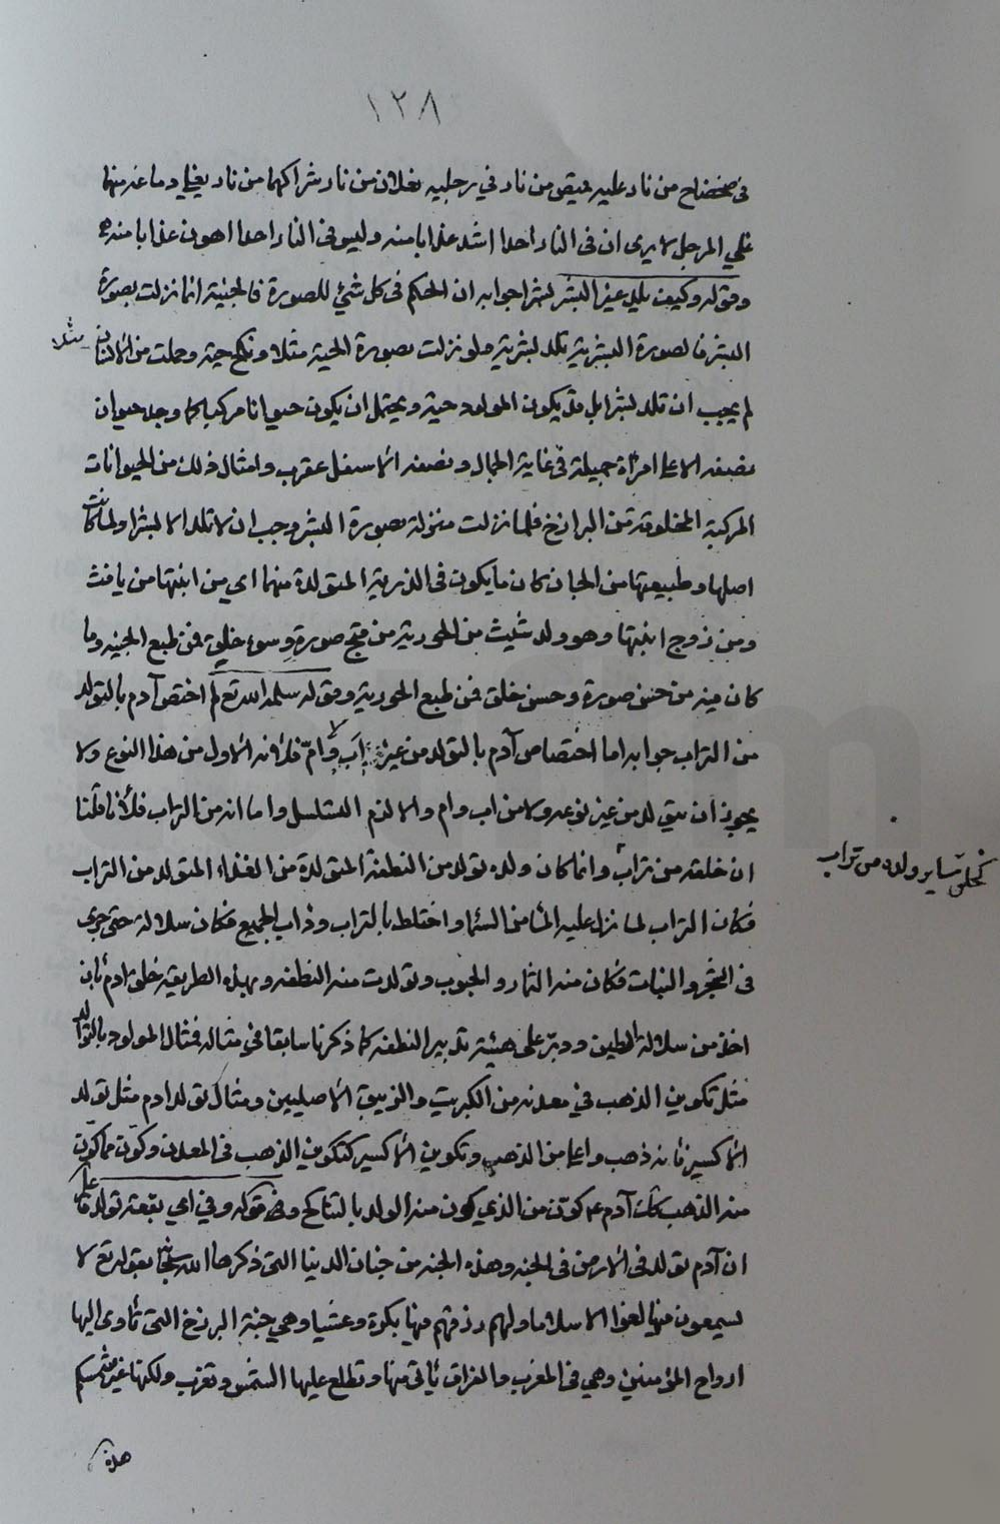 ١٢٨
فى ضحضاح من نار عليه قميص من نار في رجليه نعلان من نار شراكهما من نار يغلى دماغه منهما
غلي المرجل لا يرى ان فى النار احدا اشد عذابا منه وليس فى النار احدا اهون عذابا منه
وقوله وكيف يلد غير البشر بشرا جوابه ان الحكم فى كل شئ للصورة فالجنية انما نزلت بصورة
البشر فالصورة البشرية تلد بشرية فلو نزلت بصورة الحية مثلا ونكح حية وحملت من الانسان مثلا
لم يجب ان تلد بشرا بل قد يكون المولود حية ويحتمل ان يكون حيوانا مركبا كما وجد حيوان
نصفه الاعلى امراة جميلة فى غاية الجمال ونصفه الاسفل عقرب وامثال ذلك من الحيوانات
المركبة المخلوقة من البرازخ فلما نزلت منزلة بصورة البشر وجب ان لا تلد الا بشرا ولما كانت
اصلها وطبيعتها من الجان كان ما يكون فى الذرية المتولدة منهما اي من ابنتها من يافث
ومن زوج ابنتها وهو ولد شيث من الحورية من قبح صورة وسوء خلق فمن طبع الجنيه وما
كان فيه من حسن صورة وحسن خلق فمن طبع الحورية وقوله سلمه الله تع لم اختص آدم بالتولد
من التراب جوابه اما اختصاص آدم بالتولد من غير اب ولا ام فلأنه الاول من هذا النوع ولا
يجوز ان يتولد من غير نوعه ولا من اب وام والا لزم التسلسل واما انه من التراب فلأنا قلنا
ان خلقه من تراب وانما كان ولده تولد من النطفة المتولدة من الغذاء المتولد من التراب
كخلق ساير ولده من تراب
فكان التراب لما نزل عليه الماء من السماء واختلط بالتراب وذاب الجميع فكان سلالة حتى جرى
فى الشجر والنبات فكان منه الثمار والحبوب وتولدت منه النطفه وبهذه الطريقه خلق ادم بان
اخذ من سلالة الطين ودبر على هيئة تدبير النطفه كما ذكرنا سابقا فى مثاله فمثال المولود بالتوالد
مثل تكوين الذهب في معدنه من الكبريت والزيبق الاصليين ومثال تولد ادم مثل تولد
الاكسير فانه ذهب واعلى من الذهب وتكوين الاكسير كتكوين الذهب فى المعدن وكون مما كون
منه الذهب كذلك آدم ع كون من الذي يكون منه الولد بالتناكح وفى قوله وفي اي بقعة تولد فاعلم
ان آدم تولد فى الارض فى الجنه وهذه الجنه من جنان الدنيا التى ذكرها الله سبحانه بقوله تع لا
يسمعون فيها لغوا الا سلاما ولهم رزقهم فيها بكرة وعشيا وهي جنة البرزخ التى تأوى اليها
ارواح المؤمنين وهي فى المغرب والفرات يأتى منها وتطلع عليها الشمس وتغرب ولكنها غير شمسكم
هذه